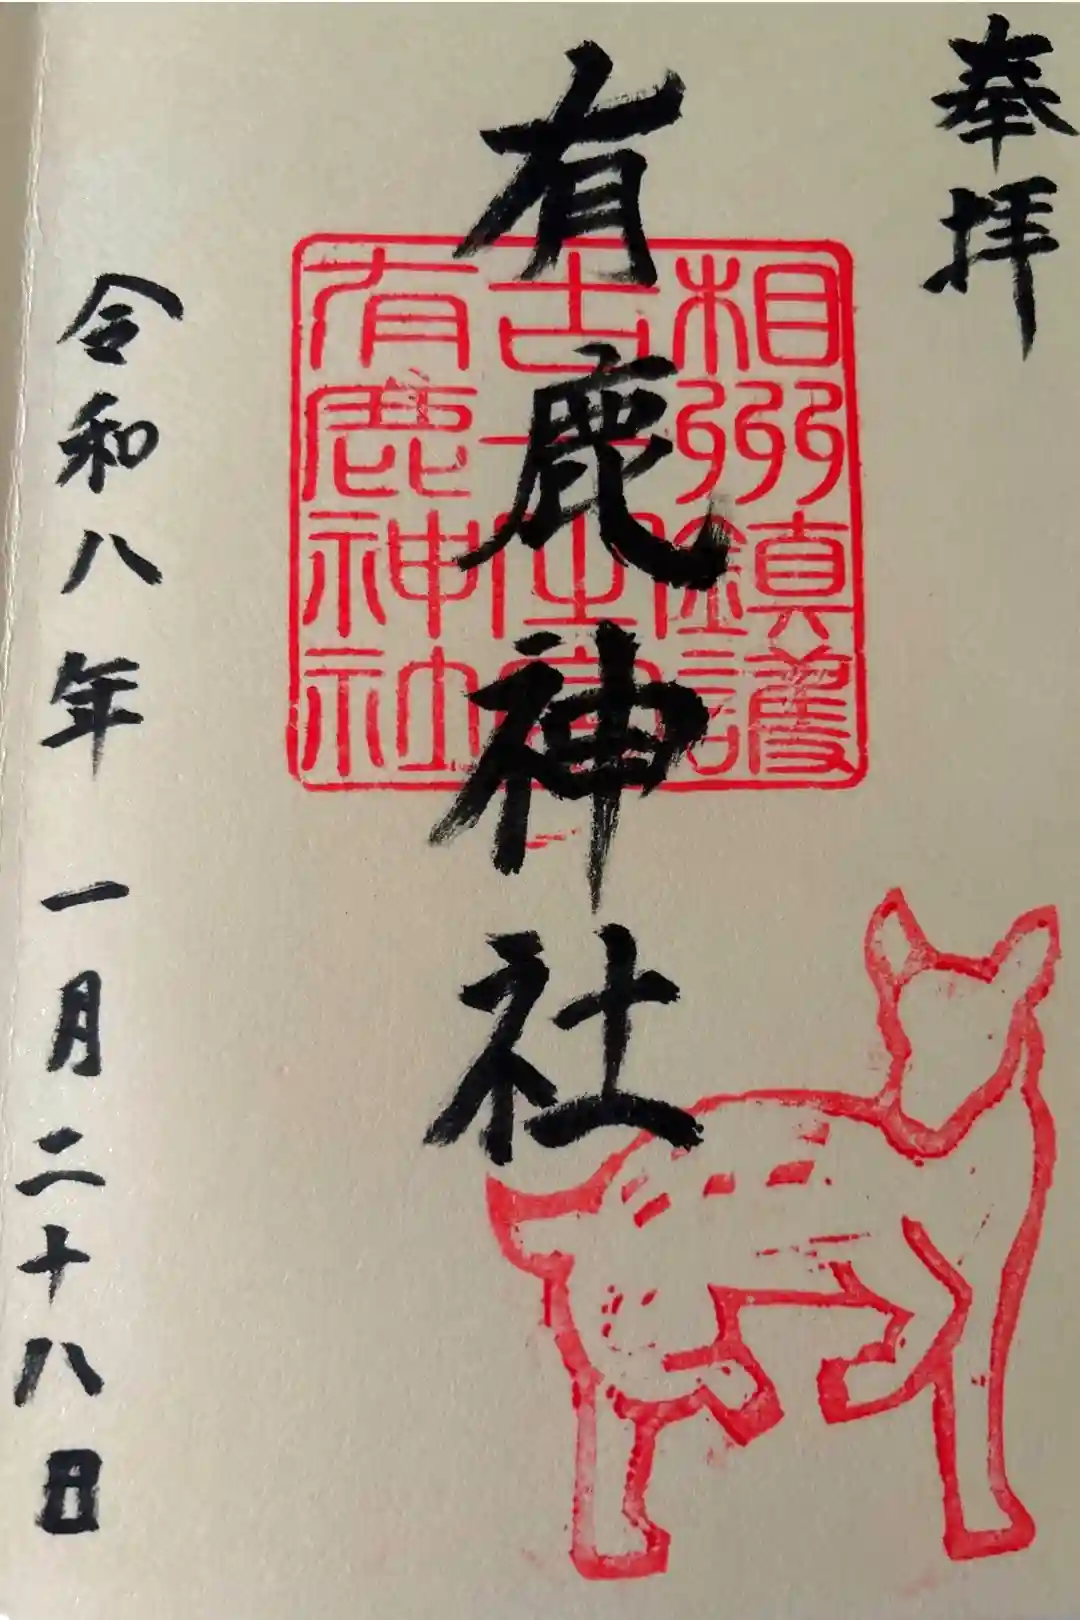 奉拝
有鹿神社
相州鎮護
有鹿神社
令和八年一月二十八日